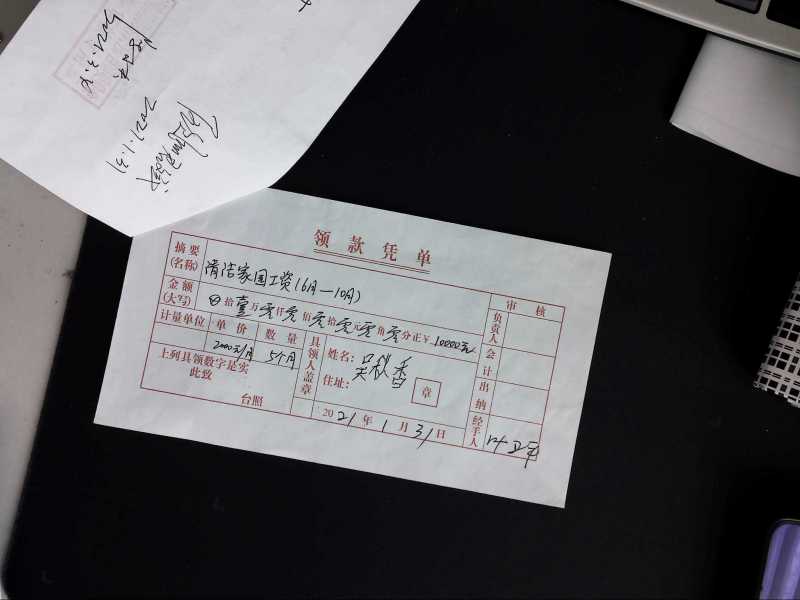 2021.3.8
2021.1.31
领款凭单
摘要(名称) 清洁家园工资(6月—10月)
审核
金额(大写) ⊗拾壹万零仟零佰零拾零元零角零分正￥10000元
负责人
计量单位 单价 数量
2000元/月 5个月
具领人盖章
姓名: 吴秋香
住址:
章
会计
出纳
上列具领数字是实
此致
台照
2021年1月31日
经手人 叶卫平